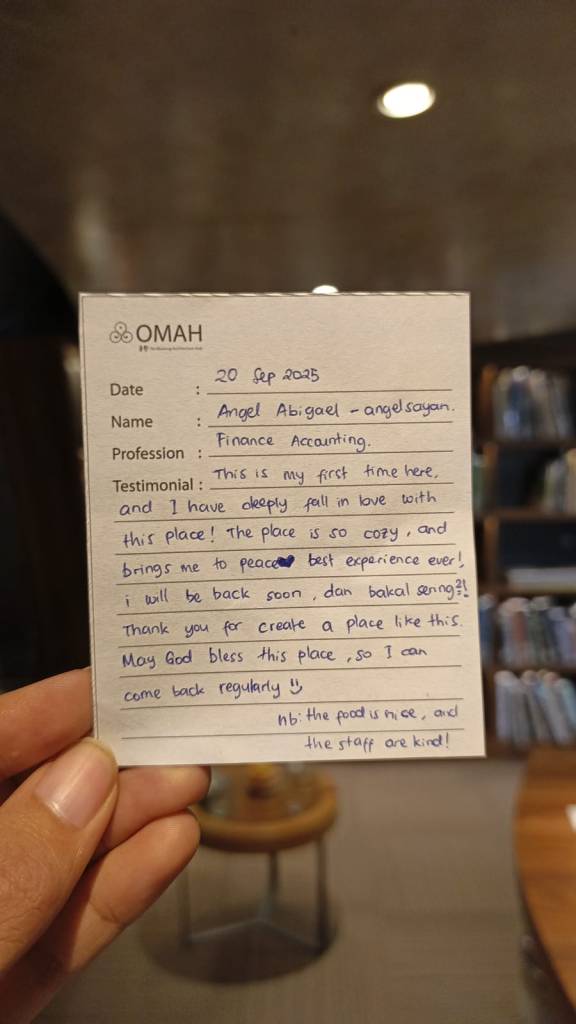 OMAH
Date : 20 Sep 2025
Name : Angel Abigael - angelsayan.
Profession : Finance Accounting.
Testimonial : This is my first time here,
and I have deeply fall in love with
this place! The place is so cozy, and
brings me to peace♥ best experience ever!
i will be back soon, dan bakal
Thank you for create a place like this.
May God bless this place, so I can
come back regularly :)
nb: the food is nice, and
the staff are kind!